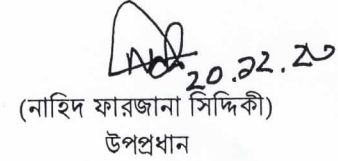 20.12.20
(নাহিদ ফারজানা সিদ্দিকী)
উপপ্রধান